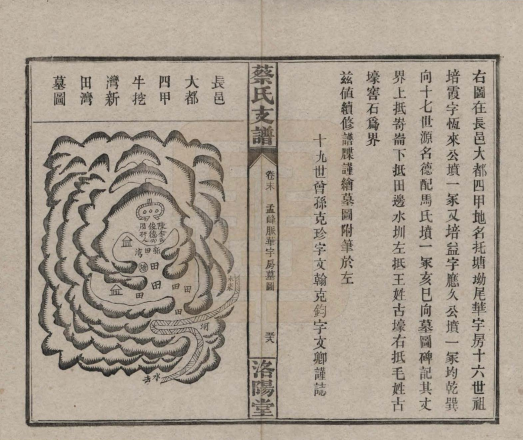 右圖在長邑大都四甲地名托塘坳尾華字房十六世祖
培霞字恆來公墳一冢又培益字應久公墳一冢均乾巽
向十七世源名德配馬氏墳一冢亥巳向墓圖碑記其丈
界上抵嵜崙下抵田邊水圳左抵王姓古壕右抵毛姓古
壕窖石爲界
茲値續修譜牒謹繪墓圖附筆於左
十九世曾孫克珍字文翰克鈞字文卿謹誌
蔡氏支譜
卷末
華字房墓圖
洛陽堂
長邑
大都
四甲
牛挖
灣新
田灣
墓圖
田
田
田
田
田
河
水